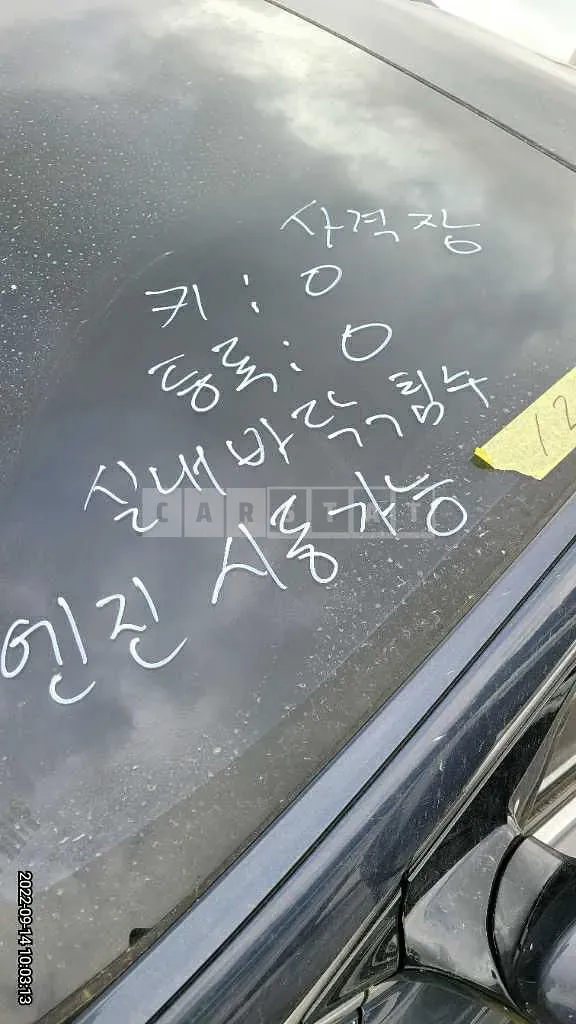 상격장
키 : O
등록 : O
실내 바닥 침수
엔진 시동 가능
12
CARSTAT
2022-09-14 10:03:13